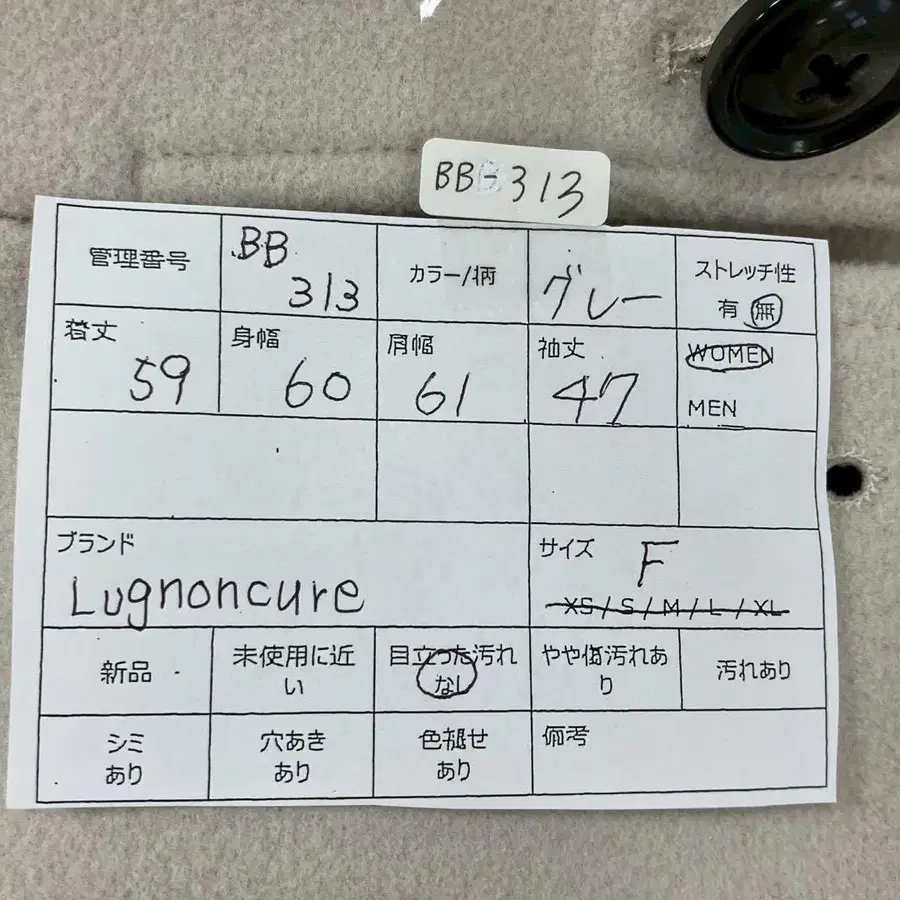 BBB-313
管理番号
BB
313
カラー/柄
グレー
ストレッチ性
有 無
着丈
59
身幅
60
肩幅
61
袖丈
47
WOMEN
MEN
ブランド
Lugnoncure
サイズ
F
XS / S / M / L / XL
新品
未使用に近
い
目立った汚れ
なし
やや傷汚れあ
り
汚れあり
シミ
あり
穴あき
あり
色褪せ
あり
備考